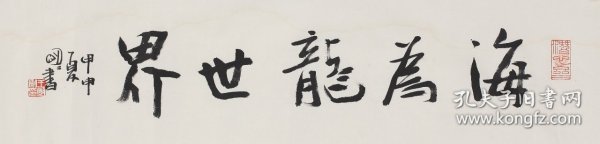 海為龍世界
甲申
夏
國書
孔夫子旧书网
www.kongfz.com